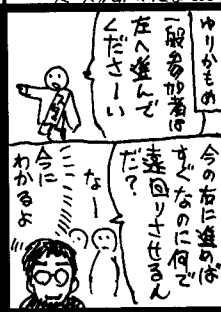 ゆりかもめ
一般参加者は
左へ進んで
くださーい
今の右に進めば
すぐなのに何で
遠回りさせるん
だ?
なー
今に
わかるよ